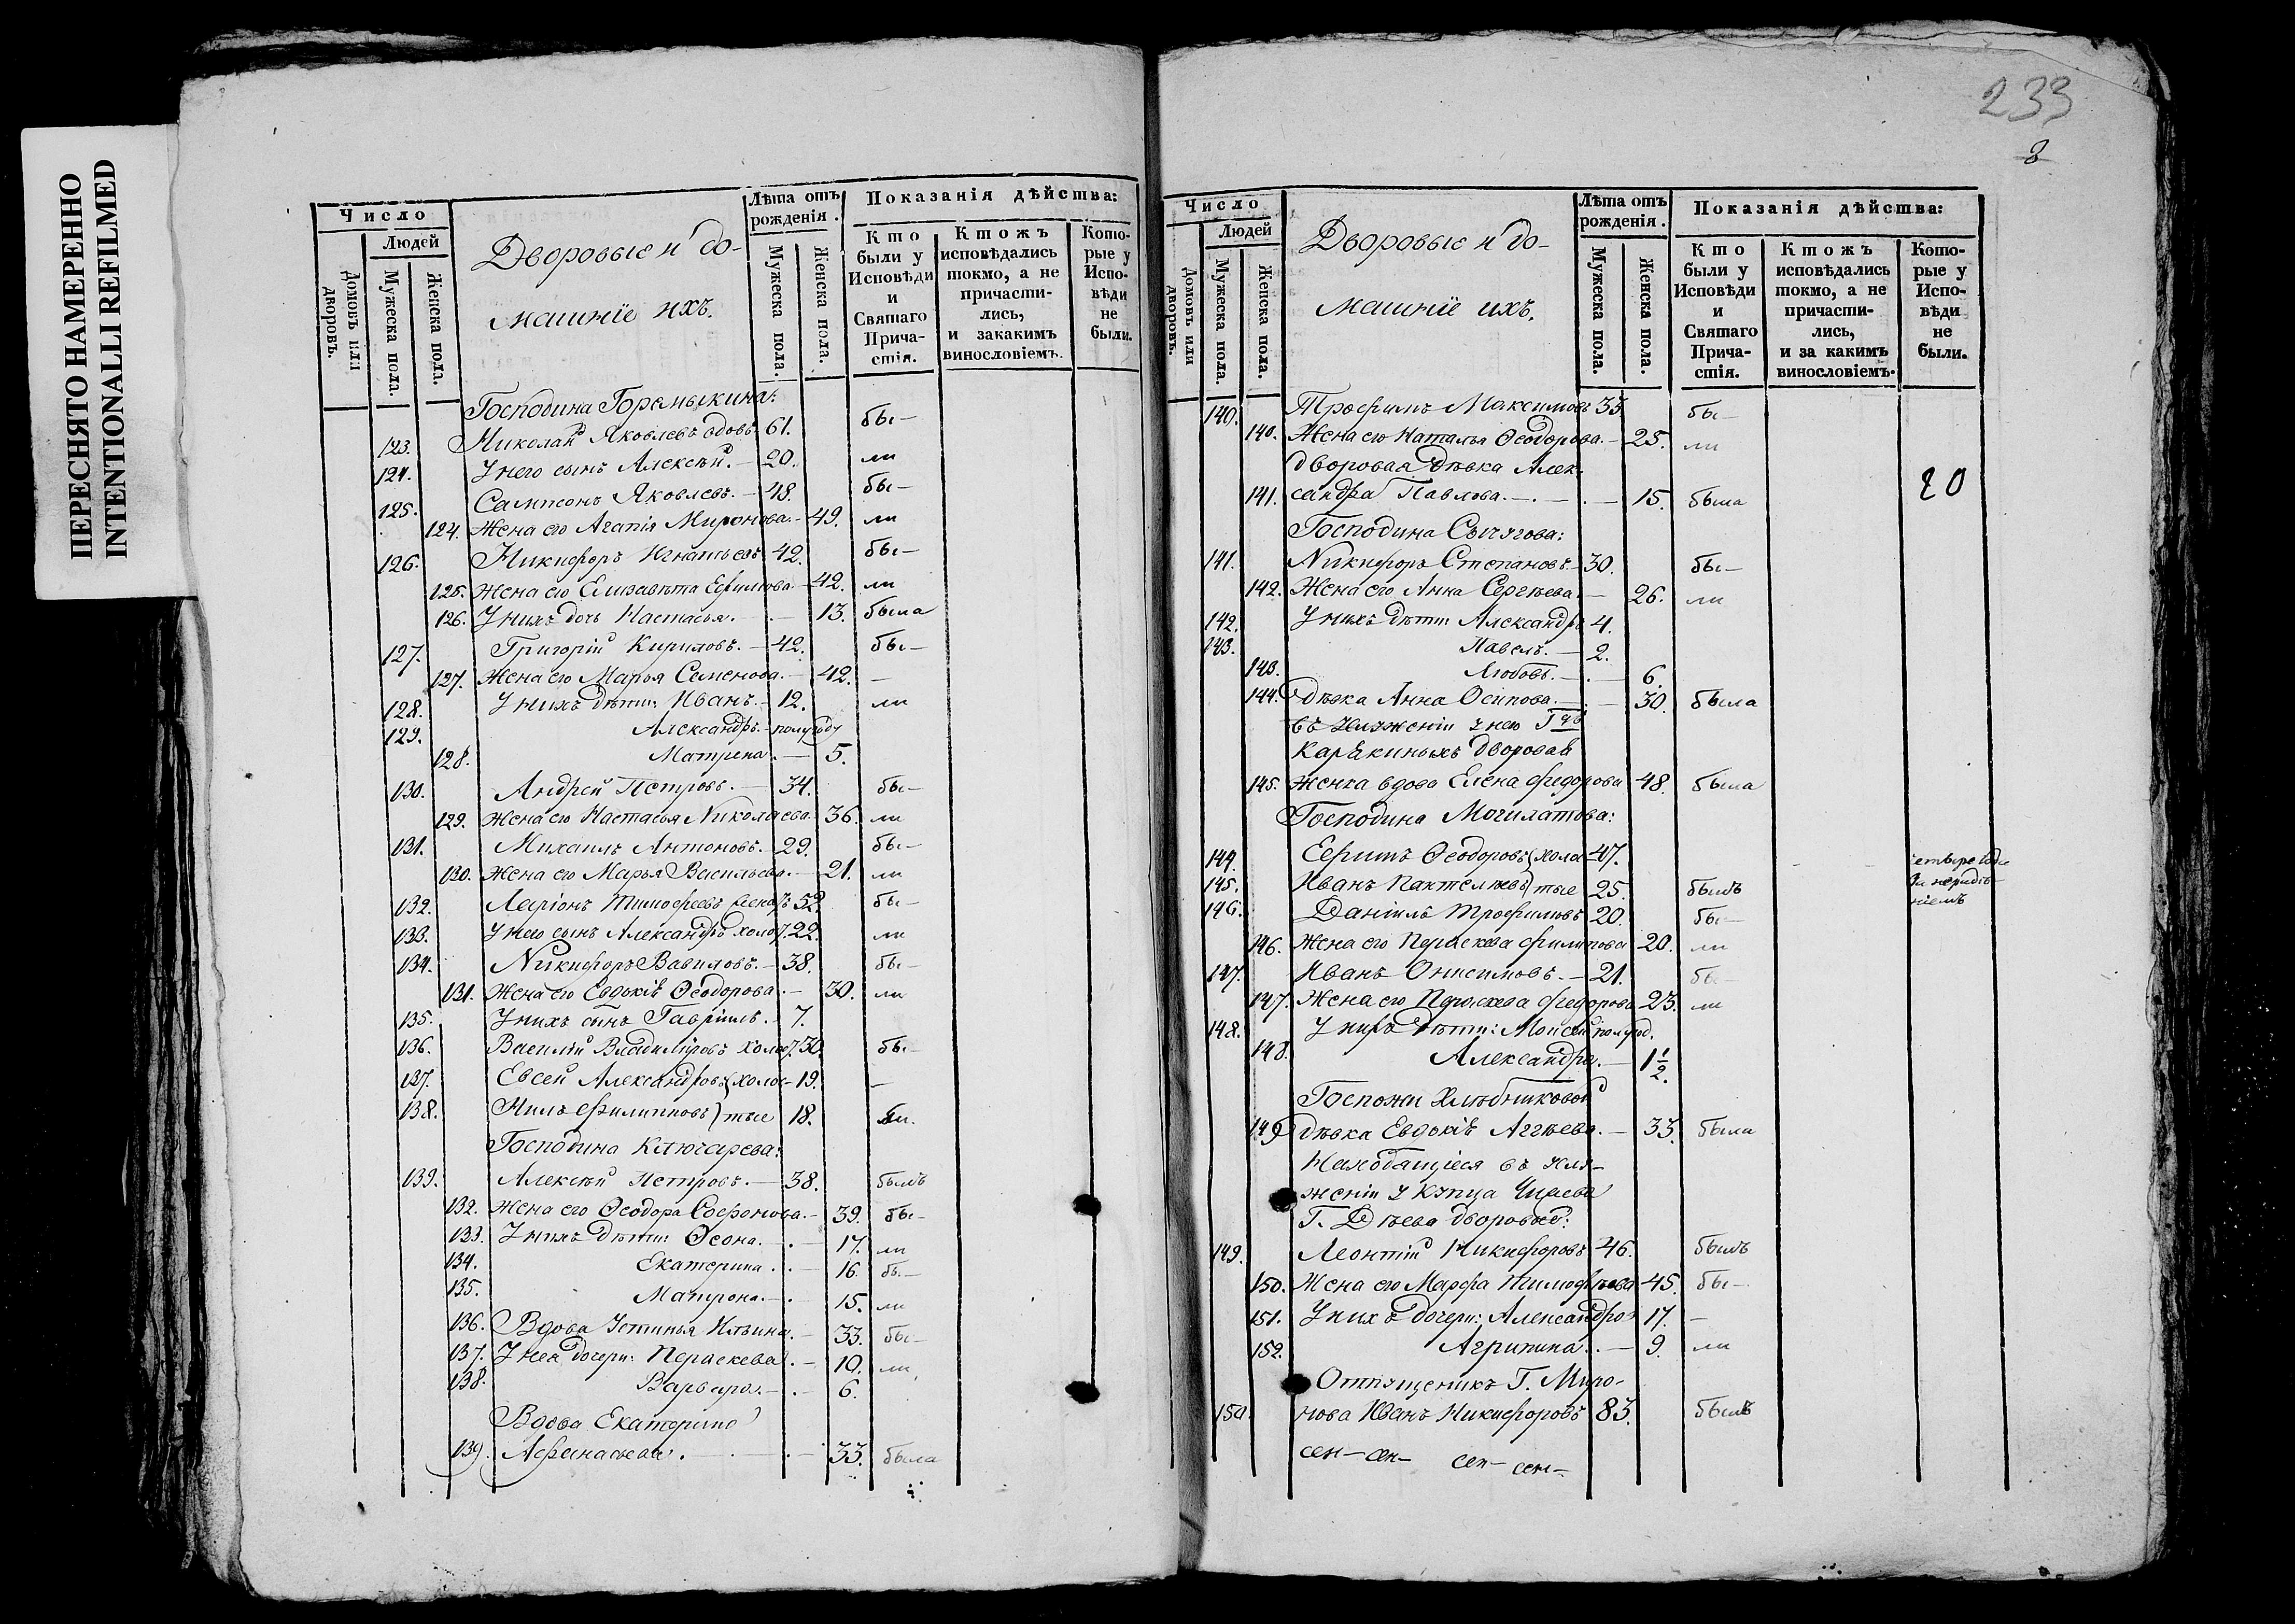 ПЕРЕСНЯТО НАМЕРЕННО
INTENTIONALLI REFILMED
Число
Людей
Домовъ или дворовъ.
Мужеска пола.
Женска пола.
Дворовые и до-
машніе ихъ.
Лѣта отъ рожденія.
Мужеска пола.
Женска пола.
Показанія дѣйства:
Кто были у Исповѣди и Святаго Прича-стія.
Ктожъ исповѣдались токмо, а не причасти-лись, и закакимъ винословіемъ.
Кото-рые у Испо-вѣди не были.
Господина Горемыкина:
123. Николай Яковлевъ вдовъ 61. бы-
124. У него сынъ Алексѣй. - 20. ли
125. Сампсонъ Яковлевъ. - 48. бы-
124. Жена его Агапія Миронова. - 49. ли
126. Никифоръ Игнатьевъ 42. бы-
125. Жена его Елизавета Ефимова. - 42. ли
126. У нихъ дочь Настасья. - 13. была
127. Григорій Кириловъ. - 42. бы-
127. Жена его Марья Семенова. - 42. -
128. У нихъ дѣти: Иванъ. - 12. ли
129. Александръ. - полугоду
128. Матрена. - 5.
130. Андрей Петровъ. - 34. бы-
129. Жена его Настасья Николаева 36. ли
131. Михаилъ Антоновъ. - 29. бы-
130. Жена его Марья Васильева. - 21. ли
132. Ларіонъ Тимофеевъ 52. бы-
133. У него сынъ Александръ холос. 22. ли
134. Никифоръ Вавиловъ. - 38. бы-
131. Жена его Евдокія Ѳеодорова. - 30. ли
135. У нихъ сынъ Гавріилъ. - 7.
136. Василій Владиміровъ холос. 30. бы-
137. Евсей Александровъ (холос- 19. -
138. Нилъ Филипповъ) тые 18. ли.
Господина Ключарева:
139. Алексѣй Петровъ. - 38. былъ
132. Жена его Ѳеодора Софонова. - 39. бы-
133. У нихъ дѣти: Ѳеона. - 17. ли
134. Екатерина. - 16. бы-
135. Матрона. - 15. ли
136. Вдова Устинья Ильина. - 33. бы-
137. У нея дочери: Пераскева. - 10. ли
138. Варвара. - 6.
Вдова Екатерина
139. Афанасьева. - 33. была
233
8
Число
Людей
Домовъ или дворовъ.
Мужеска пола.
Женска пола.
Дворовые и до-
машніе ихъ.
Лѣта отъ рожденія.
Мужеска пола.
Женска пола.
Показанія дѣйства:
Кто были у Исповѣди и Святаго Прича-стія.
Ктожъ исповѣдались токмо, а не причасти-лись, и за какимъ винословіемъ.
Кото-рые у Испо-вѣди не были.
140. Трофимъ Максимовъ 33 бы-
140. Жена его Наталья Ѳеодорова. - 25. ли
Дворовая дѣвка Алек-
141. сандра Павлова. - 15. была
20
Господина Сычугова:
141. Никифоръ Степановъ. - 30. бы-
142. Жена его Анна Сергѣева. - 26. ли
142. У нихъ дѣти: Александръ 4.
143. Павелъ. - 2.
143. Любовь. - 6.
144. Дѣвка Анна Осипова. - 30. была
въ услуженіи у нею
Карякиныхъ дворовая
145. женка вдова Елена Федорова 48. была
Господина Могилатова:
144. Ефимъ Ѳеодоровъ (холос- 47.
145. Иванъ Пантелѣевъ) тые 25. былъ
146. Даніилъ Трофимовъ 20. бы-
146. Жена его Пераскева Филипова 20. ли
147. Иванъ Онисимовъ. - 21. бы-
147. Жена его Пераскева Федорова 23. ли
148. У нихъ дѣти: Моисей полугод.
148. Александра. - 1 1/2.
Госпожи Хлѣбниковой
149 Дѣвка Евдокія Аггѣева. - 33. была
Находящіеся въ услу-
женіи у купца
Г. Дѣева дворовые:
149. Леонтій Никифоровъ 46. былъ
150. Жена его Марфа Тимофѣева 45. бы-
151. У нихъ дочери: Александра 17. -
152. Агрипина. - 9. ли
Отпущеникъ Г. Миро-
150. нова Иванъ Никифоровъ 83. былъ